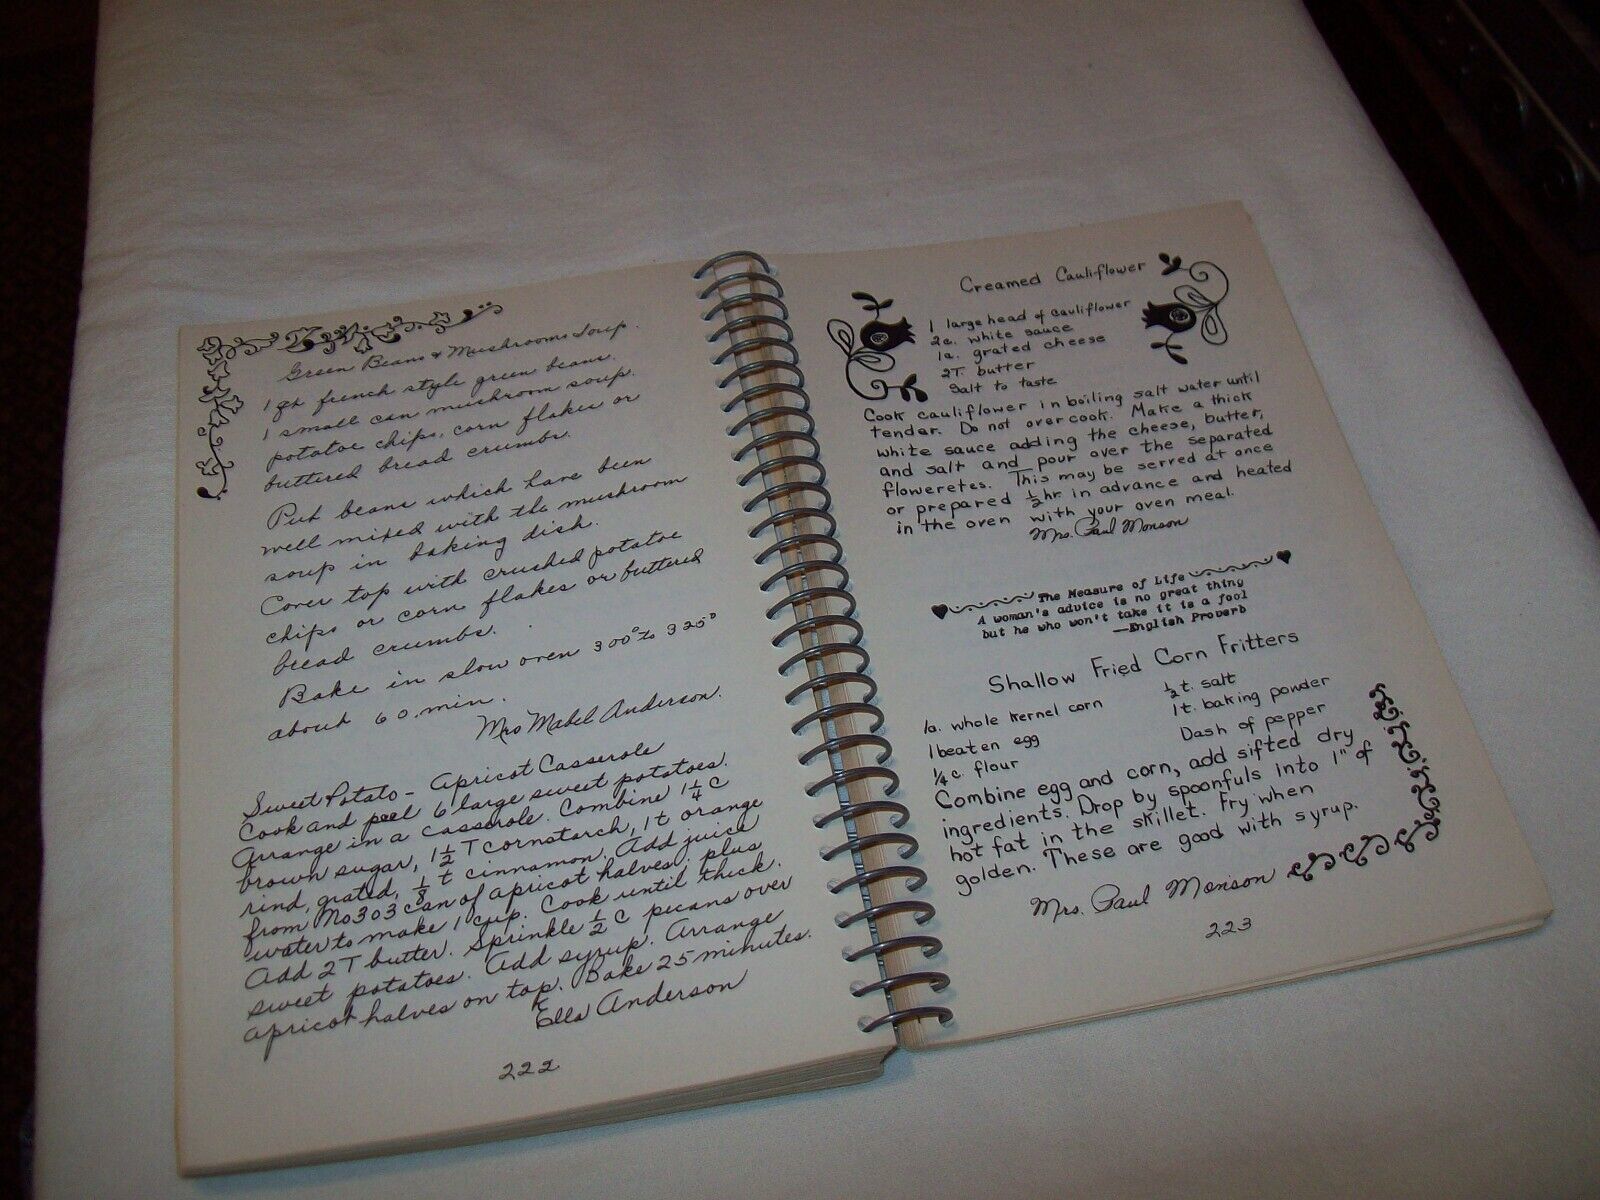 Green Beans & Mushrooms Soup.
1 qt french style green beans.
1 small can mushroom soup.
potatoe chips, corn flakes or
buttered bread crumbs.
Put beans which have been
well mixed with the mushroom
soup in baking dish.
Cover top with crushed potatoe
chips or corn flakes or buttered
bread crumbs.
Bake in slow oven 300° to 325°
about 60 min.
Mrs Mabel Anderson.
Sweet Potato - Apricot Casserole
Cook and peel 6 large sweet potatoes.
Arrange in a casserole. Combine 1 1/4 c
brown sugar, 1 1/2 T cornstarch, 1 t orange
rind, grated, 1/8 t cinnamon. Add juice
from No 303 can of apricot halves, plus
water to make 1 cup. Cook until thick.
Add 2 T butter. Sprinkle 1/2 c pecans over
sweet potatoes. Add syrup. Arrange
apricot halves on top. Bake 25 minutes.
Ella Anderson
222
Creamed Cauliflower
1 large head of cauliflower
2c. white sauce
1c. grated cheese
2T. butter
Salt to taste
Cook cauliflower in boiling salt water until
tender. Do not over cook. Make a thick
white sauce adding the cheese, butter,
and salt and pour over the separated
floweretes. This may be served at once
or prepared 1/2 hr in advance and heated
in the oven with your oven meal.
Mrs. Paul Monson
The Measure of Life
A woman's advice is no great thing
but he who won't take it is a fool
—English Proverb
Shallow Fried Corn Fritters
1c. whole kernel corn
1 beaten egg
1/4 c. flour
1/2 t. salt
1t. baking powder
Dash of pepper
Combine egg and corn, add sifted dry
ingredients. Drop by spoonfuls into 1" of
hot fat in the skillet. Fry when
golden. These are good with syrup.
Mrs. Paul Monson
223